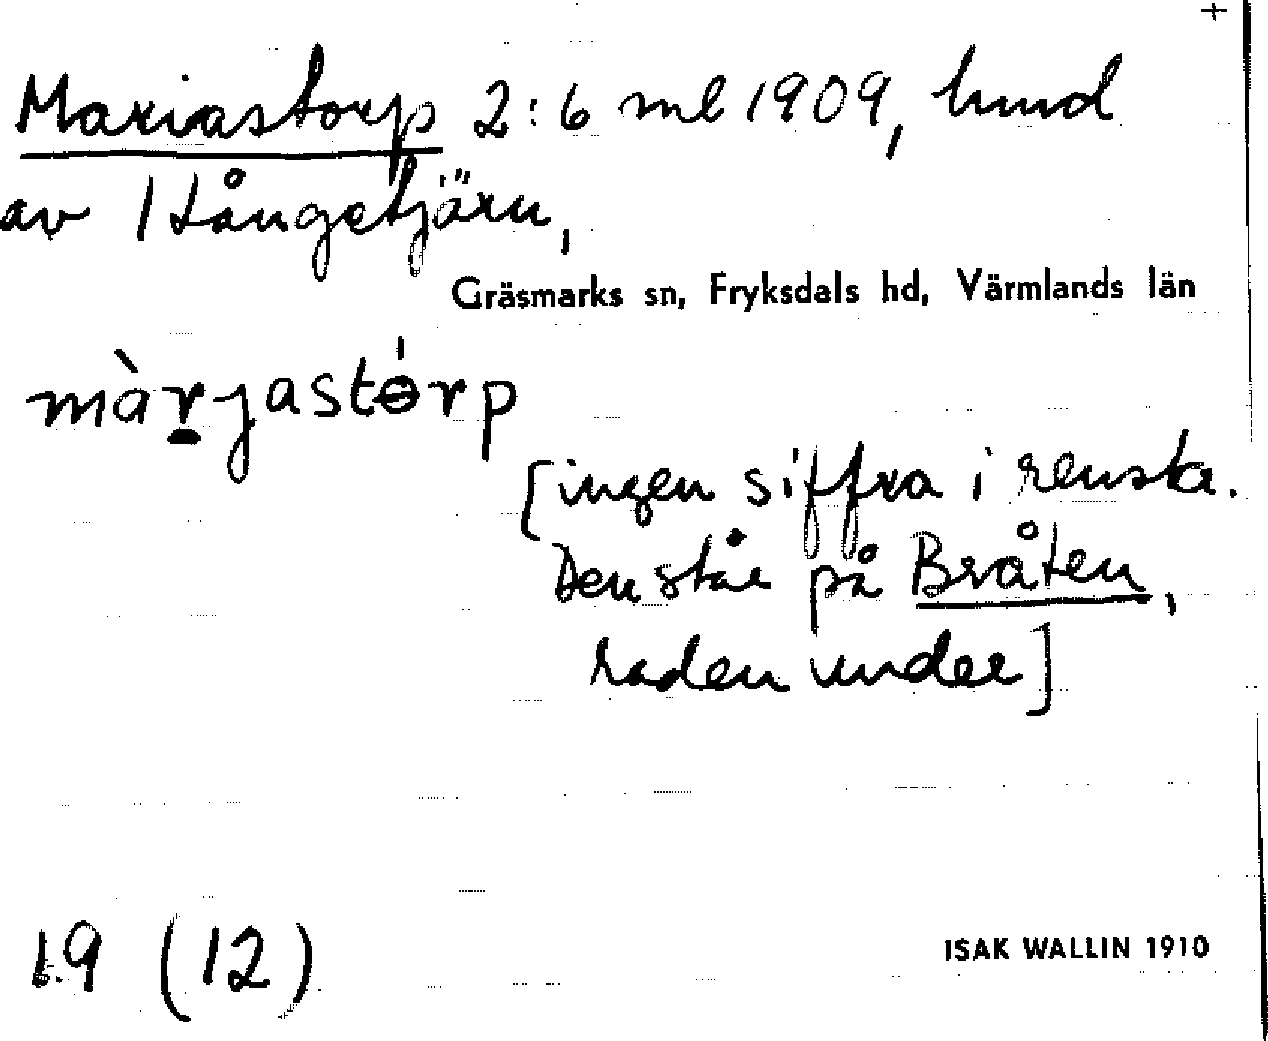 +
Mariastorp 2:6 ml 1909, hmd
av 1 Långetjärn,
Gräsmarks sn, Fryksdals hd, Värmlands län
màr̠jastɵ́rp
[ingen siffra i rensta.
Den står på Bråten,
raden under]
19 (12)
ISAK WALLIN 1910